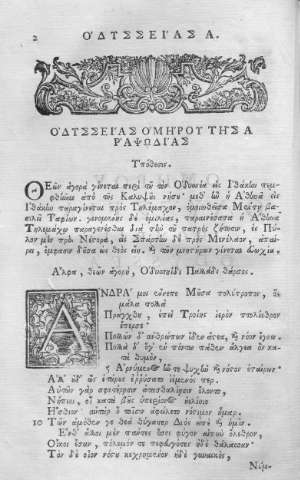 2 ὈΔΥΣΣΕΊΑΣ Α.
ὈΔΥΣΣΕΊΑΣ ὉΜΉΡΟΥ ΤΗ͂Σ Α
ῬΑΨΩΔΊΑΣ
Ὑπόθεσις.
Θεῶν ἀγορὰ γίνεται περὶ τοῦ τὸν Ὀδυσσέα εἰς Ἰθάκην
ἀπὸ τῆς Καλυψοῦς νήσου· μεθ᾽ ἣν ἡ Ἀθηνᾶ εἰς
Ἰθάκην παραγίνεται πρὸς Τηλέμαχον, ὁμοιωθεῖσα Μέντῃ βασιλεῖ
Ταφίων. γενομένης δὲ ὁμιλίας, παραινέσασα ἡ Ἀθηνᾶ
Τηλεμάχῳ παραγενέσθαι διὰ τὴν τοῦ πατρὸς ζήτησιν, εἰς Πύλον
μὲν πρὸς Νέστορα, εἰς Σπάρτην δὲ πρὸς Μενέλαον,
ἔμφασιν δοῦσα ὡς θεὸς εἴη. καὶ τῶν μνηστήρων γίνεται εὐωχία.
Ἄλφα, θεῶν ἀγορὴ, Ὀδυσσηΐδι Παλλάδι θάρσος.
ἌΝΔΡΑ μοι ἔννεπε Μοῦσα πολύτροπον, ὃς
μάλα πολλὰ
Πλάγχθη, ἐπεὶ Τροίης ἱερὸν πτολίεθρον
ἔπερσε·
Πολλῶν δ᾽ ἀνθρώπων ἴδεν ἄστεα, καὶ νόον ἔγνω·
Πολλὰ δ᾽ ὅγ᾽ ἐν πόντῳ πάθεν ἄλγεα ὃν κατὰ
θυμὸν,
5 Ἀρνύμενος ἥν τε ψυχὴν καὶ νόστον ἑταίρων·
Ἀλλ᾽ οὐδ᾽ ὣς ἑτάρους ἐρρύσατο ἱέμενός περ.
Αὐτῶν γὰρ σφετέρῃσιν ἀτασθαλίῃσιν ὄλοντο,
Νήπιοι, οἳ κατὰ βοῦς ὑπερίονος ἠελίοιο
Ἤσθιον· αὐτὰρ ὁ τοῖσιν ἀφείλετο νόστιμον ἦμαρ.
10 Τῶν ἁμόθεν γε θεὰ θύγατερ Διὸς εἰπὲ καὶ ἡμῖν.
Ἔνθ᾽ ἄλλοι μὲν πάντες ὅσοι φύγον αἰπὺν ὄλεθρον,
Οἴκοι ἔσαν, πόλεμόν τε πεφευγότες ἠδὲ θάλασσαν·
Τὸν δ᾽ οἶον νόστου κεχρημένον ἠδὲ γυναικὸς,
Νύμ-